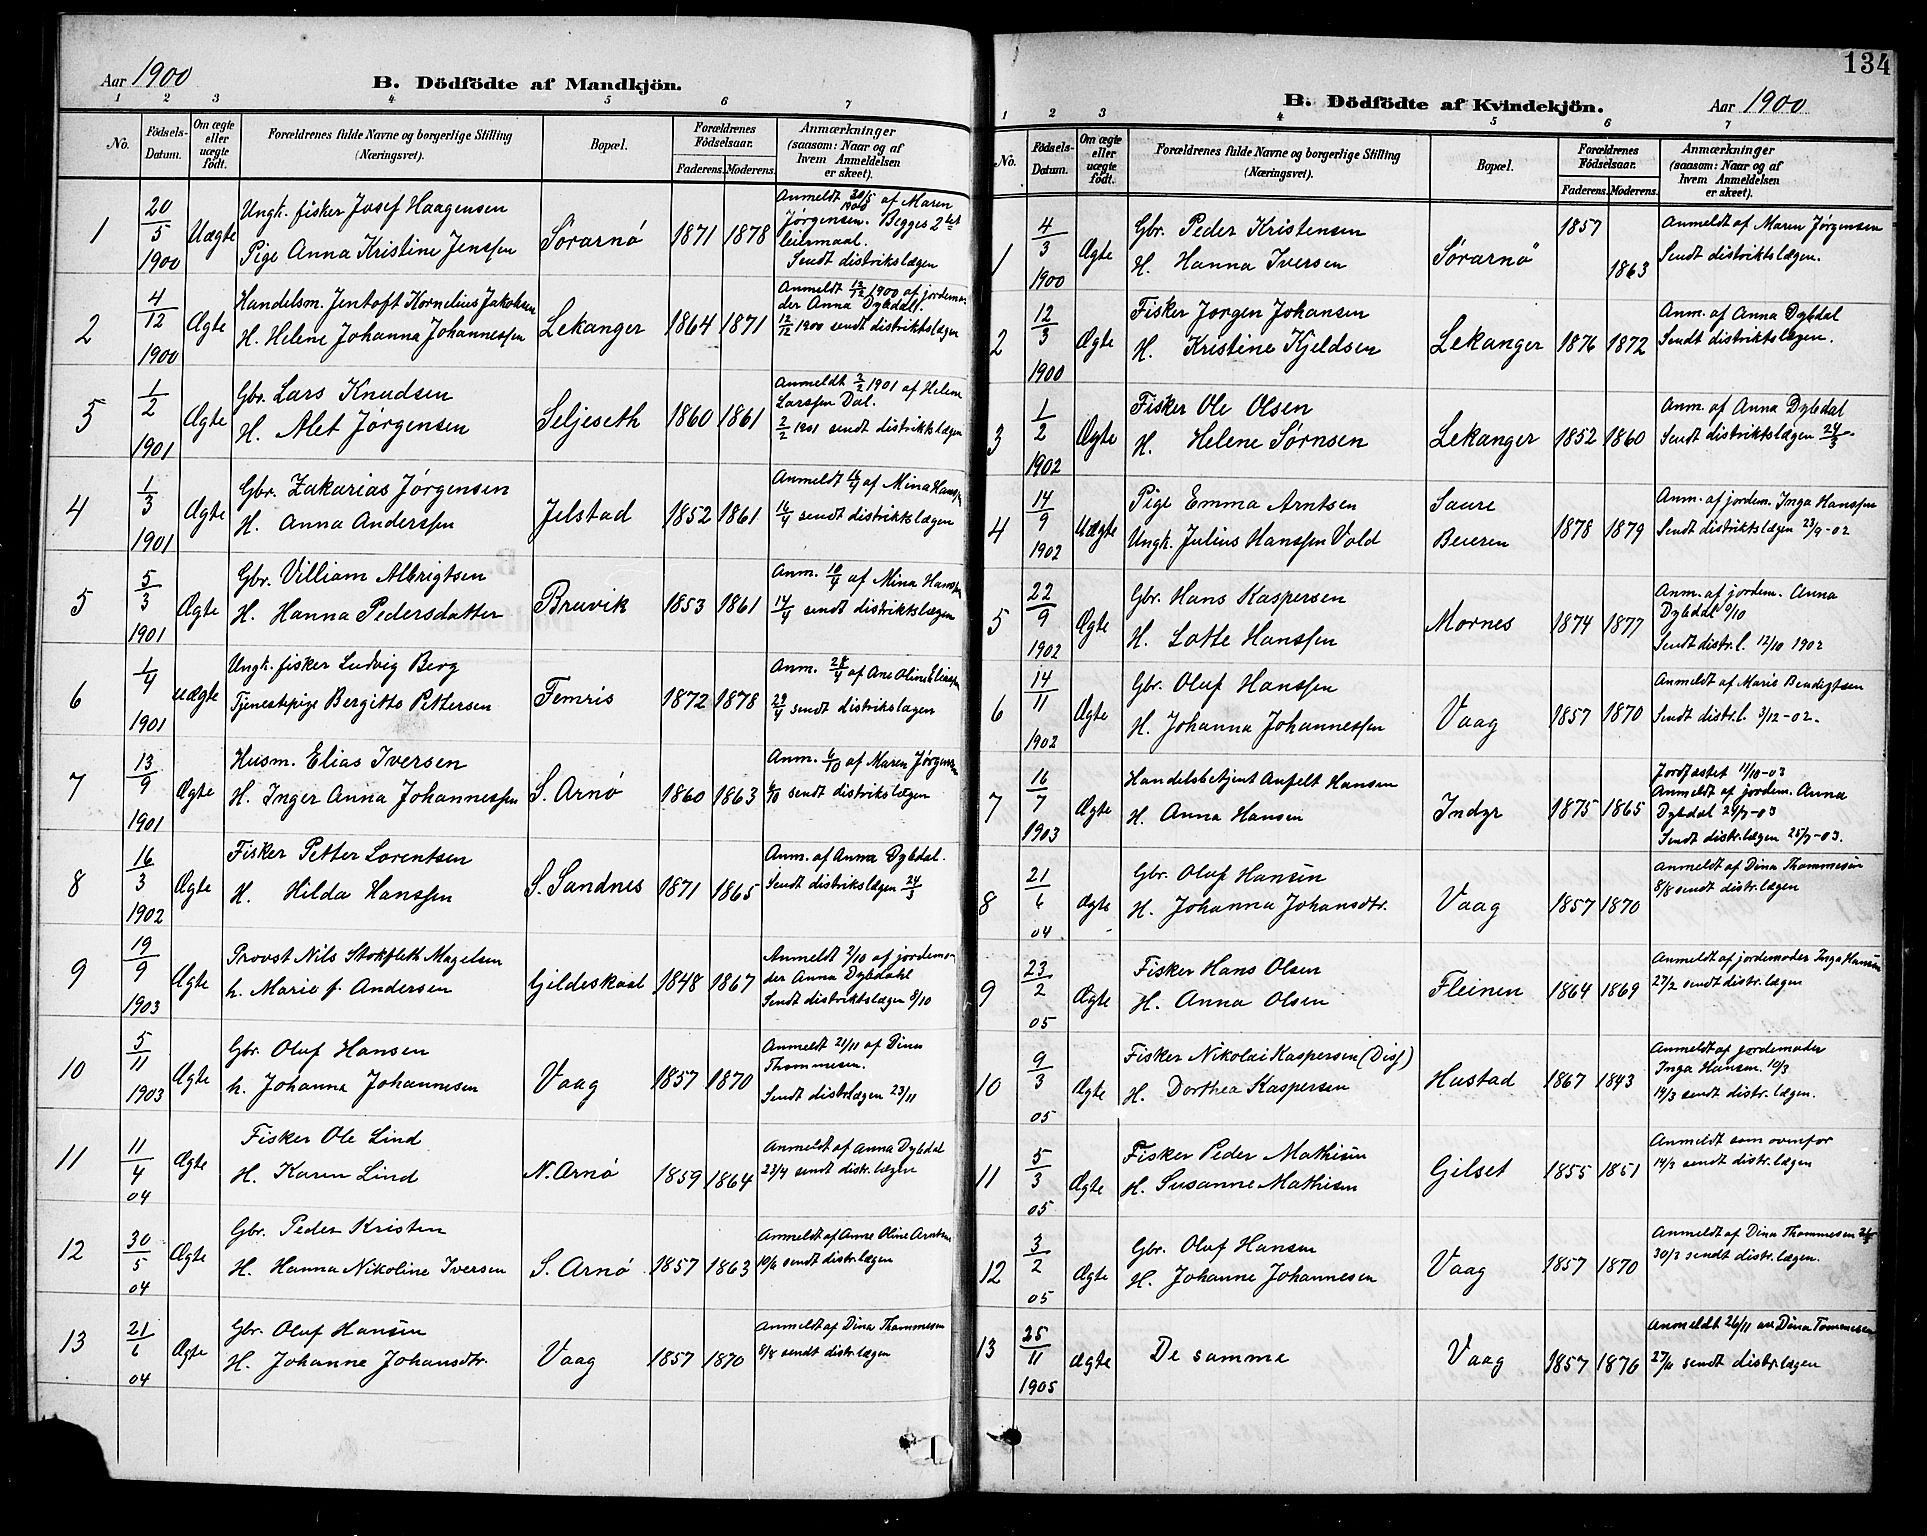 Aar 1900
B. Dödfödte af Mandkjön.
1 2 3 4 5 6 7
No.
Fødsels-Datum.
Om ægte eller uægte født.
Forældrenes fulde Navne og borgerlige Stilling (Næringsvei).
Bopæl.
Forældrenes Fødselsaar.
Faderens. Moderens.
Anmærkninger (saasom: Naar og af hvem Anmeldelsen er skeet).
1 20/5 1900 Uægte
Ungk. fisker Josef Haagensen
Pige Anna Kristine Jenssen
Sørarnø 1871 1878
Anmeldt 30/5 1900 af Maren
Jørgensen. Begges 2det
leiermaal.
Sendt distrikslægen
2 4/12 1900 Ægte
Handelsm. Jentoft Kornelius Jakobsen
H. Helene Johanna Johannessen
Lekanger 1864 1871
Anmeldt 12/12 1900 af jordemo-
der Anna Dybdal.
12/12 1900 sendt distriktslægen
5 1/2 1901 Ægte
Gbr. Lars Knudsen
H. Alet Jørgensen
Seljeseth 1860 1861
Anmeldt 2/2 1901 af Helene
Larssen Dal.
2/2 1901 sendt distriktslægen
4 1/3 1901 Ægte
Gbr. Zakarias Jørgensen
H. Anna Anderssen
Jelstad 1852 1861
Anmeldt af Mina Hanss
16/4 sendt distriktslægen
5 5/3 1901 Ægte
Gbr. Villiam Albrigtsen
H. Hanna Pedersdatter
Bruvik 1853 1861
Anm. 10/4 af Mina Hanss
14/4 sendt distriktslægen
6 1/4 1901 uægte
Ungk. fisker Ludvig Berg
Tjenestepige Bergitte Pettersen
Femris 1872 1878
Anm. 28/4 af Ane Oline Eliassen
29/4 sendt distrikslægen
7 13/9 1901 Ægte
Husm. Elias Iversen
H. Inger Anna Johannessen
S. Arnø 1860 1863
Anm. 6/10 af Maren Jørgensen
6/10 sendt distrikslægen
8 16/3 1902 Ægte
Fisker Petter Lorentsen
H. Hilda Hanssen
S. Sandnes 1871 1865
Anm. af Anna Dybdal.
Sendt distrikslægen 24/3
9 19/9 1903 Ægte
Provst Nils Stokfleth Magelsen
h. Marie f. Andersen
Gildeskaal 1848 1867
Anmeldt 7/10 af jordemo-
der Anna Dybdahl
Sendt distriktslægen 8/10
10 5/11 1903 Ægte
Gbr. Oluf Hansen
h. Johanna Johannesen
Vaag 1857 1870
Anmeldt 21/11 af Dina
Thommesen.
Sendt distr.lægen 23/11
11 11/4 04 Ægte
Fisker Ole Lind
H. Karen Lind
N. Arnø 1859 1864
Anmeldt af Anna Dybdal
23/4 sendt distr. lægen
12 30/5 04 Ægte
Gbr. Peder Kristen
H. Hanna Nikoline Iversen
S. Arnø 1857 1863
Anmeldt af Anne Oline Arntsen
10/6 sendt distr.lægen
13 21/6 04 Ægte
Gbr. Oluf Hansen
H. Johanne Johansdtr.
Vaag 1857 1870
Anmeldt af Dina Thommesen
8/8 sendt distr.lægen
134
B. Dödfödte af Kvindekjön.
Aar 1900
1 2 3 4 5 6 7
No.
Fødsels-Datum.
Om ægte eller uægte født.
Forældrenes fulde Navne og borgerlige Stilling (Næringsvei).
Bopæl.
Forældrenes Fødselsaar.
Faderens. Moderens.
Anmærkninger (saasom: Naar og af hvem Anmeldelsen er skeet).
1 4/3 1900 Ægte
Gbr. Peder Kristensen
H. Hanna Iversen
Sørarnø 1857 1863
Anmeldt af Maren Jørgensen
Sendt distriktslægen.
2 12/3 1900 Ægte
Fisker Jørgen Johansen
H. Kristine Kjeldsen
Lekanger 1876 1872
Anm. af Anna Dybdal
Sendt distriktslægen.
3 1/2 1902 Ægte
Fisker Ole Olsen
H. Helene Sørnsen
Lekanger 1852 1860
Anm. af Anna Dybdal
Sendt distriktslægen 24/3.
4 14/9 1902 uægte
Pige Emma Arntsen
Ungk. Julius Hanssen Vold
Saure
Beieren 1878 1879
Anm. af jordem. Inga Hanssen
Sendt distriktslægen 23/9-02
5 22/9 1902 Ægte
Gbr. Hans Kaspersen
H. Lotte Hanssen
Mornes 1874 1877
Anm. af jordem. Anna
Dybdal 9/10
Sendt distr.l. 12/10 1902
6 14/11 1902 Ægte
Gbr. Oluf Hanssen
H. Johanna Johannessen
Vaag 1857 1870
Anmeldt af Marie Bendigtsen
Sendt distr.l. 3/12-02.
7 16/7 1903 Ægte
Handelsbetjent Anfelt Hansen
H. Anna Hansen
Indyr 1875 1865
Jordfæstet 11/10-03
Anmeldt af jordem. Anna
Dybdal 24/7-03
Sendt distr.lægen 25/7-03.
8 21/6 04 Ægte
Gbr. Oluf Hansen
H. Johanna Johansdtr.
Vaag 1857 1870
Anmeldt af Dina Thommesen
8/8 sendt distr.lægen
9 23/2 05 Ægte
Fisker Hans Olsen
H. Anna Olsen
Fleinen 1864 1869
Anmeldt af jordemoder Inga Hansen
27/2 sendt distr.lægen
10 9/3 05 Ægte
Fisker Nikolai Kaspersen (Diss)
H. Dorthea Kaspersen
Hustad 1867 1843
Anmeldt af jordemoder
Inga Hansen. 10/3
14/3 sendt distr. lægen.
11 5/3 05 Ægte
Fisker Peder Mathisen
H. Susanne Mathisen
Gilset 1855 1851
Anmeldt som ovenfor
14/3 sendt distr.lægen
12 3/2 05 Ægte
Gbr. Oluf Hansen
H. Johanne Johannesen
Vaag 1857 1870
Anmeldt af Dina Thommesen
30/3 sendt distr.lægen.
13 25/11 1905 ægte
De samme
Vaag 1857 1876
Anmeldt 26/11 av Dina Tommesen
27/11 sendt distr.lægen